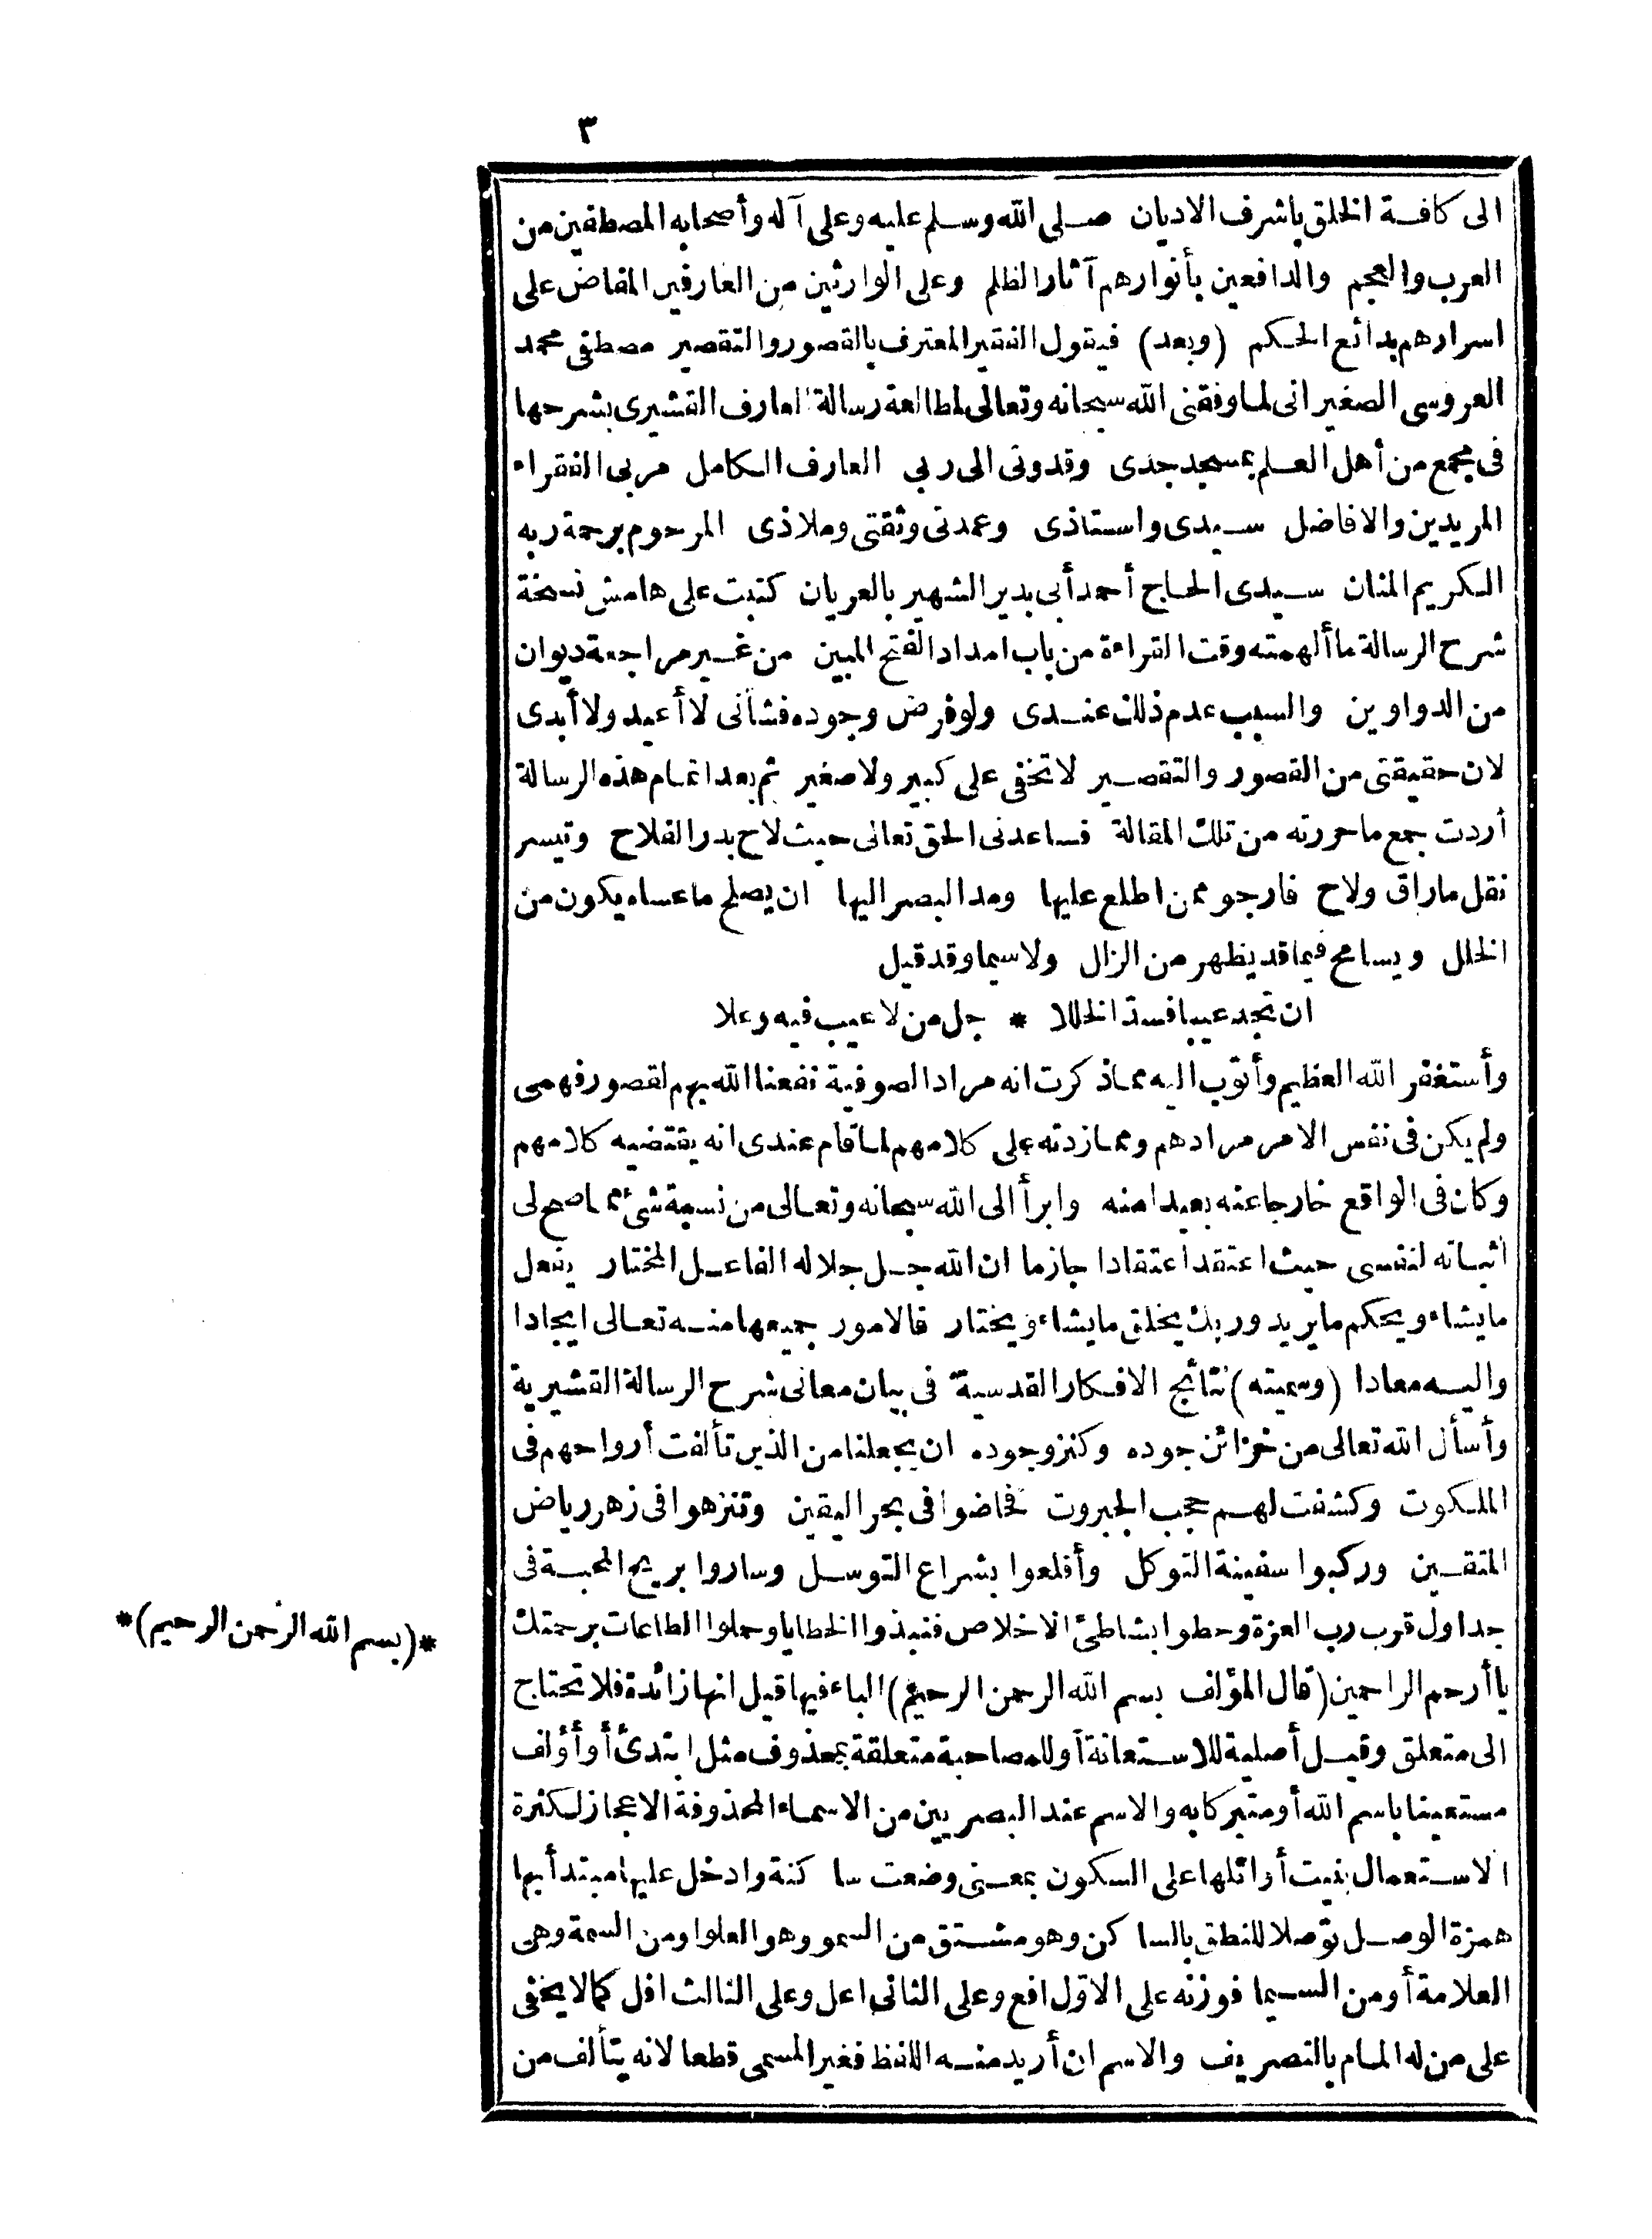 ٣
الى كافة الخلق باشرف الاديان صلى الله وسلم عليه وعلى آله وأصحابه المصطفين من
العرب والعجم والدافعين بأنوارهم آثار الظلم وعلى الوارثين من العارفين المفاض على
اسرارهم بدائع الحكم (وبعد) فيقول الفقير المعترف بالقصور والتقصير مصطفى محمد
العروسى الصغير انى لما وفقنى الله سبحانه وتعالى لمطالعة رسالة العارف القشيرى بشرحها
فى مجمع من أهل العلم بمسجد جدى وقدوتى الى ربى العارف الكامل مربى الفقراء
المريدين والافاضل سيدى واستاذى وعمدتى وثقتى وملاذى المرحوم برحمة ربه
الكريم المنان سيدى الحاج أحمد أبى بدير الشهير بالعريان كتبت على هامش نسخة
شرح الرسالة ما ألهمته وقت القراءة من باب امداد الفتح المبين من غير مراجعة ديوان
من الدواوين والسبب عدم ذلك عندى ولو فرض وجوده فشأنى لا أعيد ولا أبدى
لان حقيقتى من القصور والتقصير لا تخفى على كبير ولا صغير ثم بعد اتمام هذه الرسالة
أردت جمع ما حررته من تلك المقالة فساعدنى الحق تعالى حيث لاح بدر الفلاح وتيسر
نقل ماراق ولاح فارجو ممن اطلع عليها ومد البصر اليها ان يصلح ما عساه يكون من
الخلل ويسامح فيما قد يظهر من الزلل ولا سيما وقد قيل
ان تجد عيبا فسد الخللا * جل من لا عيب فيه وعلا
وأستغفر الله العظيم وأتوب اليه مما ذكرت انه مراد الصوفية نفعنا الله بهم لقصور فهمى
ولم يكن فى نفس الامر مرادهم ومما زدته على كلامهم لما قام عندى انه يقتضيه كلامهم
وكان فى الواقع خارجا عنه بعيدا منه وابرأ الى الله سبحانه وتعالى من نسبة شئ مما صح لى
اثباته لنفسى حيث اعتقد اعتقادا جازما ان الله جل جلاله الفاعل المختار يفعل
ما يشاء ويحكم ما يريد وربك يخلق ما يشاء ويختار فالامور جميعها منه تعالى ايجادا
واليه معادا (وسميته) نتائج الافكار القدسية فى بيان معانى شرح الرسالة القشيرية
وأسأل الله تعالى من خزائن جوده وكنز وجوده ان يجعلنا من الذين تألفت أرواحهم فى
الملكوت وكشفت لهم حجب الجبروت فخاضوا فى بحر اليقين وتنزهوا فى زهر رياض
المتقين وركبوا سفينة التوكل وأقلعوا بشراع التوسل وساروا بريح المحبة فى
جداول قرب رب العزة وحطوا بشاطئ الاخلاص فنبذوا الخطايا وحملوا الطاعات برحمتك
*(بسم الله الرحمن الرحيم)*
يا أرحم الراحمين (قال المؤلف بسم الله الرحمن الرحيم) الباء فيها قيل انها زائدة فلا تحتاج
الى متعلق وقيل أصلية للاستعانة أو للمصاحبة متعلقة بمحذوف مثل ابتدئ أو أؤلف
مستعينا باسم الله أو متبركا به والاسم عند البصريين من الاسماء المحذوفة الاعجاز لكثرة
الاستعمال بنيت أوائلها على السكون بمعنى وضعت ساكنة وادخل عليها مبتدأ بها
همزة الوصل توصلا للنطق بالساكن وهو مشتق من السمو وهو العلو اومن السمة وهى
العلامة أو من السيما فوزنه على الاول افع وعلى الثانى اعل وعلى الثالث افل كما لا يخفى
على من له المام بالتصريف والاسم ان أريد منه اللفظ فغير المسمى قطعا لانه يتألف من